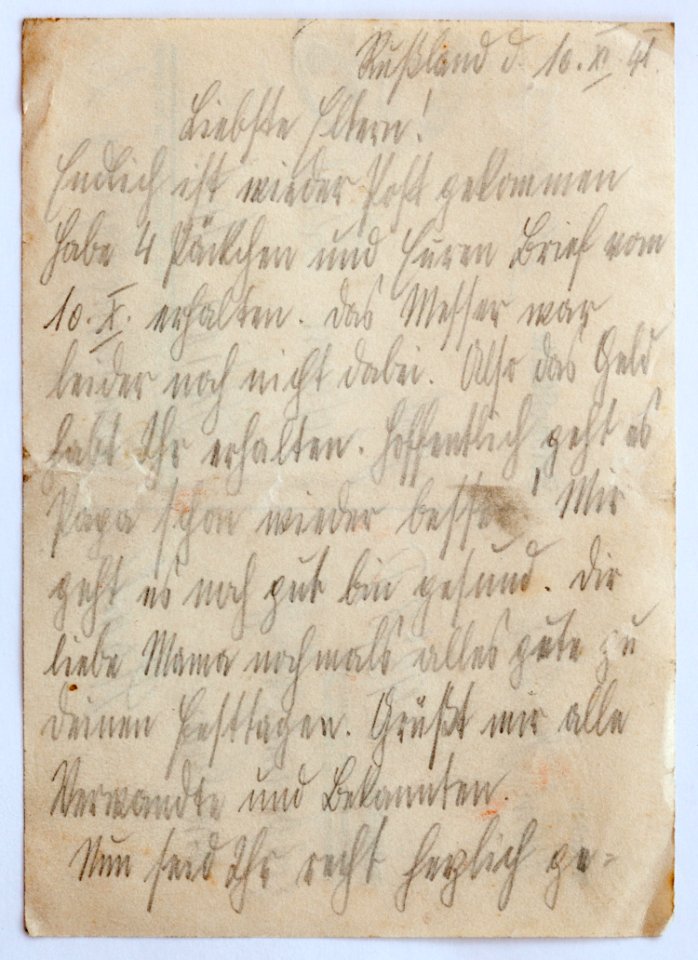 Rußland d. 10. XI. 41.
Liebste Eltern!
Endlich ist wieder Post gekommen
habe 4 Päckchen und Euren Brief vom
10. X. erhalten. Das Messer war
leider noch nicht dabei. Also das Geld
habt Ihr erhalten. Hoffentlich geht es
Papa schon wieder besser! Mir
geht es noch gut bin gesund. Dir
liebe Mama nochmals alles gute zu
deinen Festtagen. Grüßt mir alle
Verwandte und Bekannten.
Nun seid Ihr recht herzlich ge=